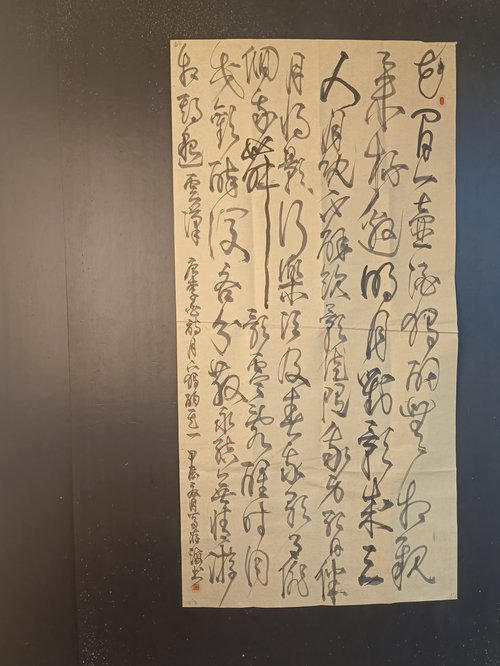 花間一壺酒獨酌無相親
舉杯邀明月對影成三
人月既不解飲影徒隨我身暫伴
月將影行樂須及春我歌月徘
徊我舞影零亂醒時同
交歡醉後各分散永結無情遊
相期邈雲漢 唐李白詩月下獨酌其一 甲辰 月 書